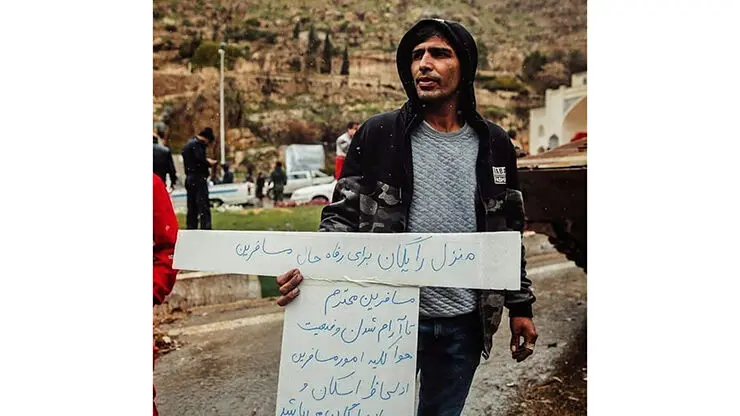 منزل رایگان برای رفاه حال مسافرین
مسافرین محترم
تا آرام شدن وضعیت
هوا کلیه امور مسافرین
از لحاظ اسکان و
رایگان می باشد